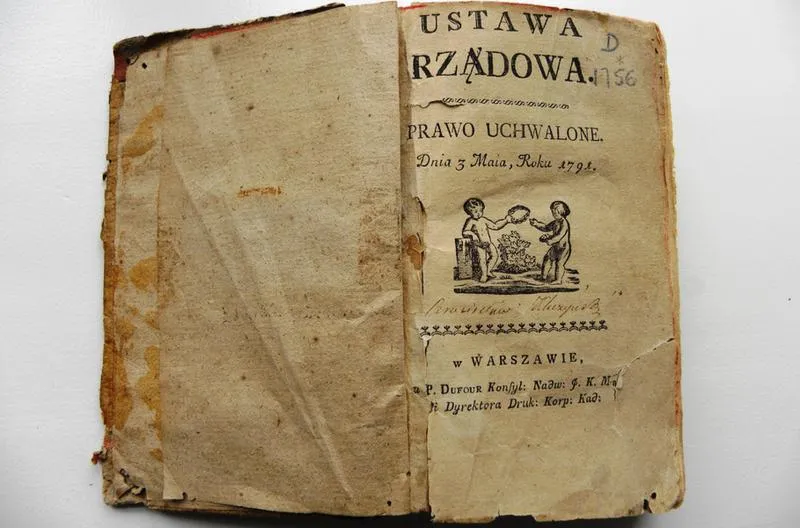 USTAWA
RZĄDOWA.
D
*
1756
PRAWO UCHWALONE.
Dnia 3 Maia, Roku 1791.
w WARSZAWIE,
u P. DUFOUR Konſyl: Nadw: J. K. M:
i Dyrektora Druk: Korp: Kad: